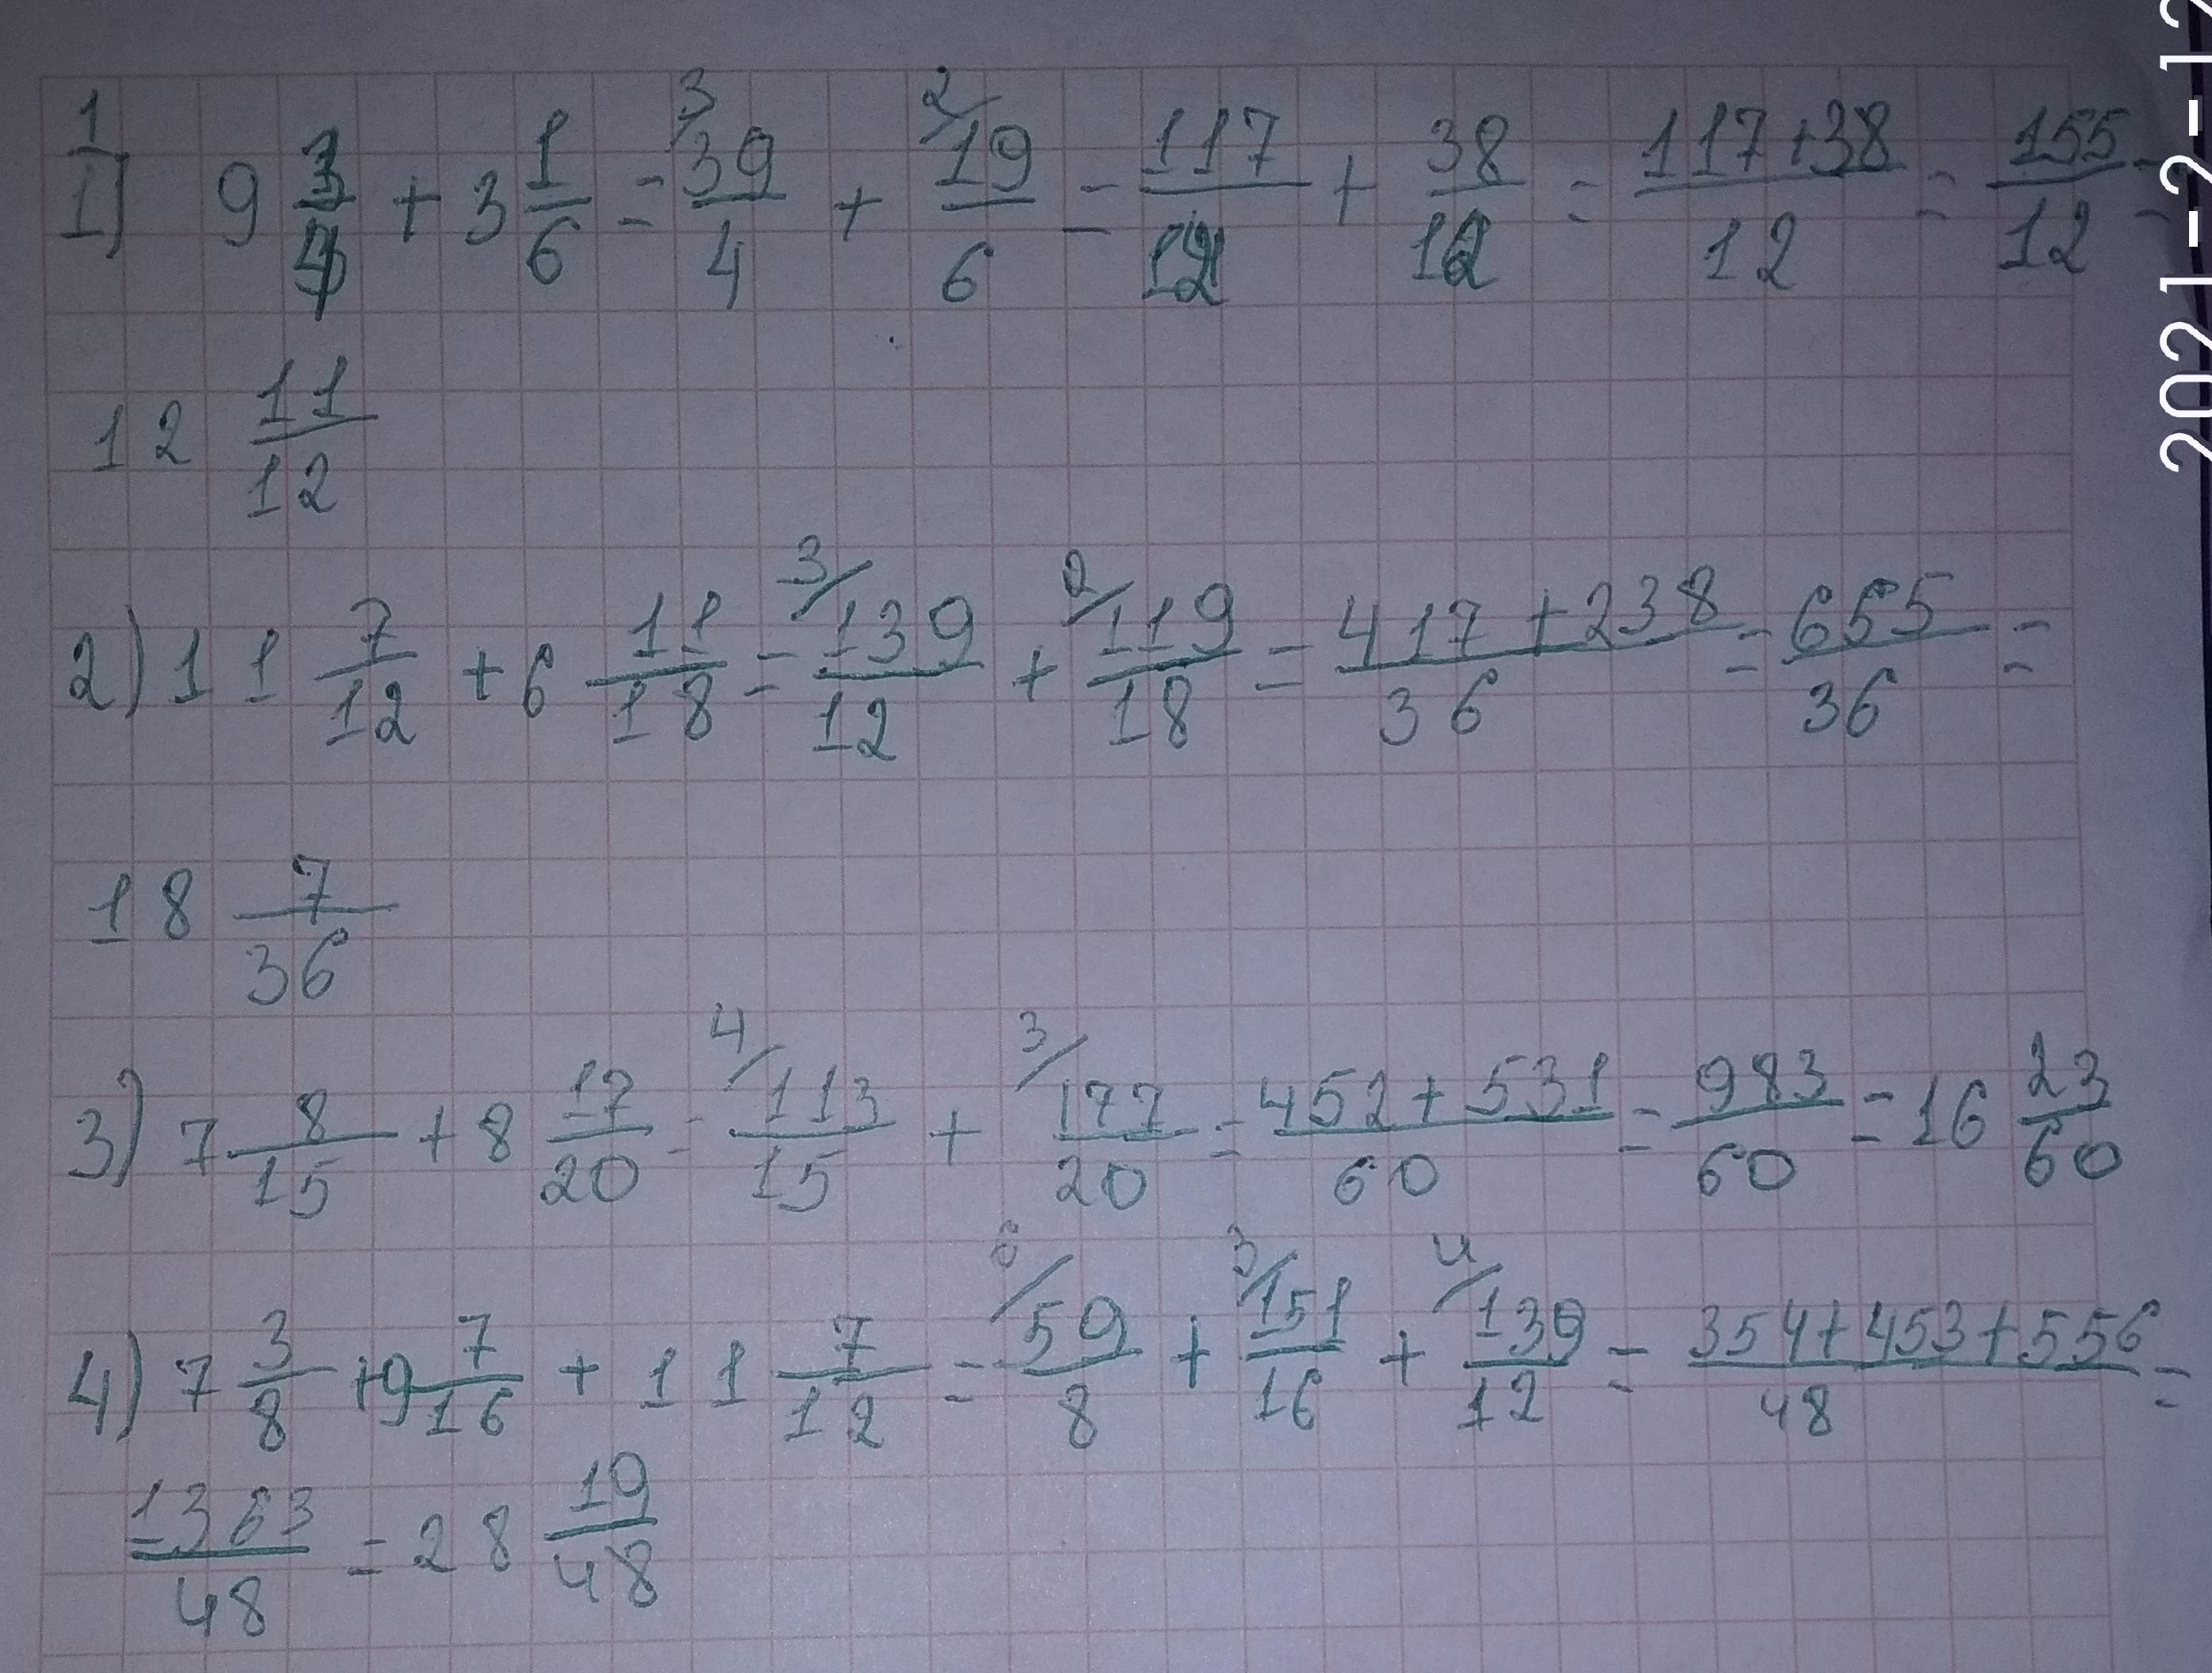 1
1) 9 3/4 + 3 1/6 = 3/ 39/4 + 2/ 19/6 = 117/12 + 38/12 = 117+38/12 = 155/12 =
12 11/12
2) 11 7/12 + 6 11/18 = 3/ 139/12 + 2/ 119/18 = 417+238/36 = 655/36 =
18 7/36
3) 7 8/15 + 8 17/20 = 4/ 113/15 + 3/ 177/20 = 452+531/60 = 983/60 = 16 23/60
4) 7 3/8 + 9 7/16 + 11 7/12 = 6/ 59/8 + 3/ 151/16 + 4/ 139/12 = 354+453+556/48 =
1363/48 = 28 19/48
2021-2-12